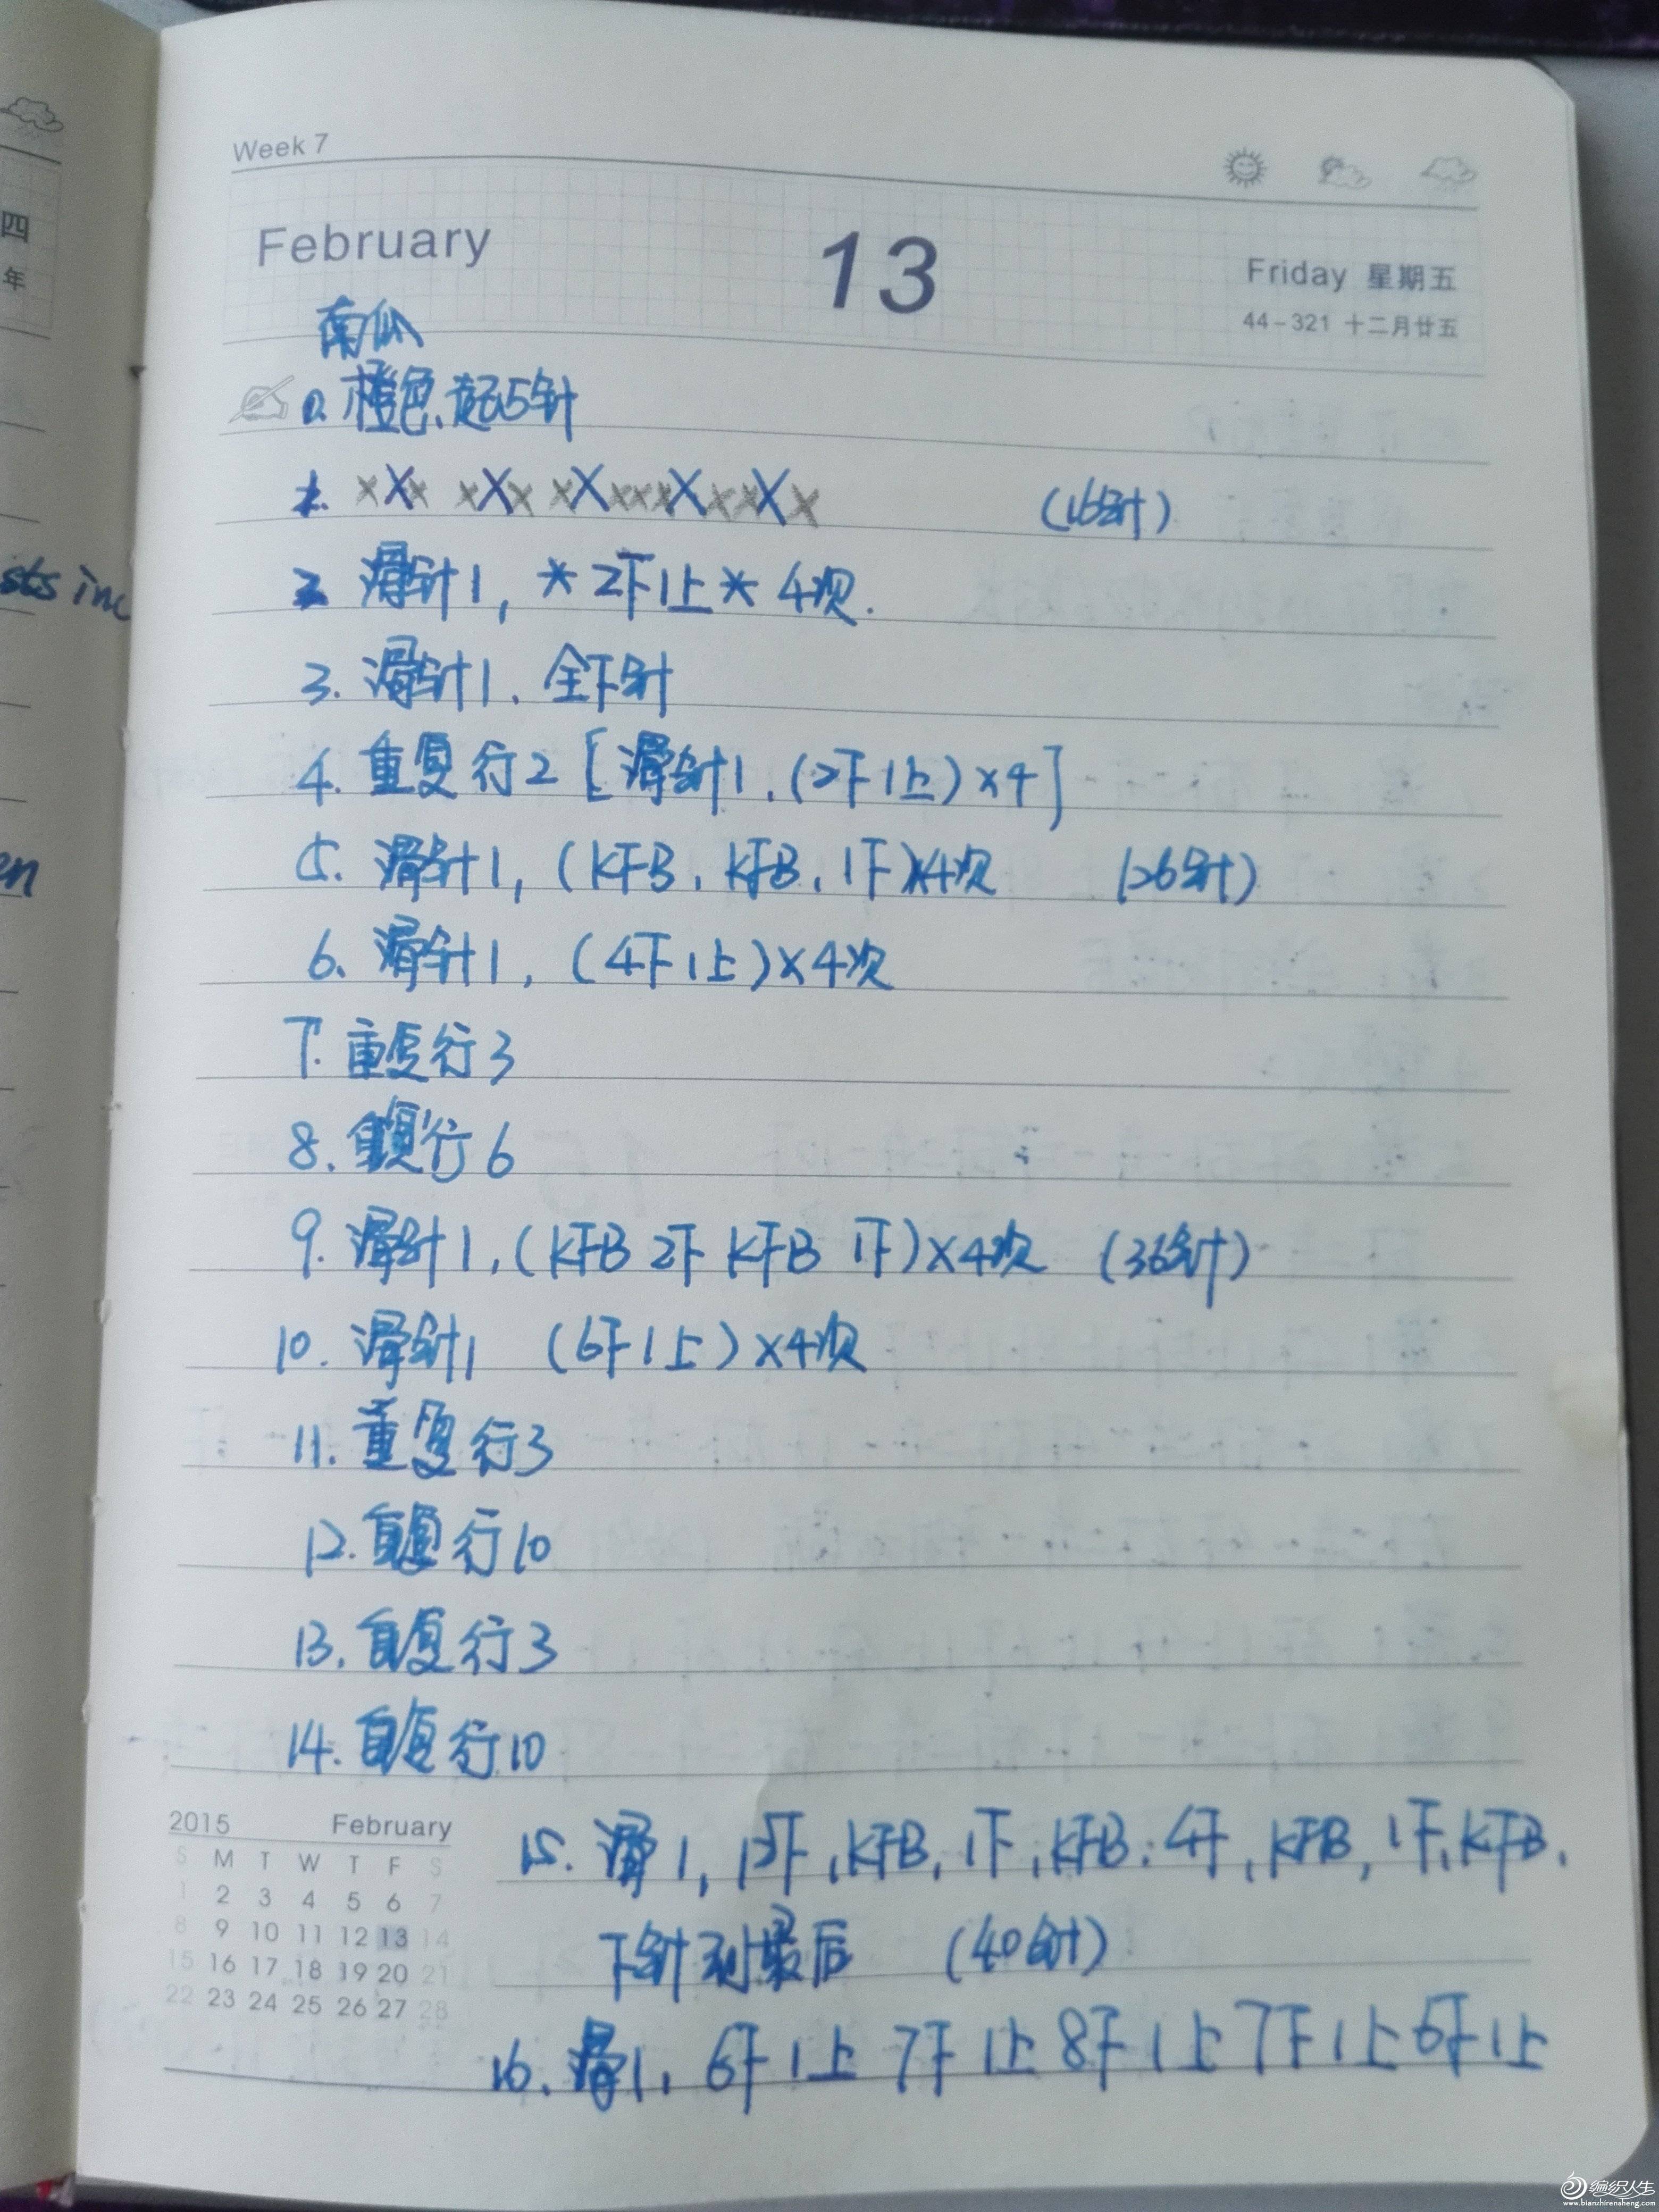 Week 7
February 13 Friday 星期五
44-321 十二月廿五
四
年
sts inc
en
南瓜
0. 橙色、起5针
1. ×X× ×X× ×X×××X×××X× (16针)
2 滑针1, *2下1上* 4次.
3. 滑针1、全下针
4. 重复行2 [滑针1、(2下1上)×4]
5. 滑针1, (KFB、KFB、1下)×4次 (26针)
6、滑针1, (4下1上)×4次
7. 重复行3
8. 重复行6
9. 滑针1, (KFB 2下 KFB 1下)×4次 (36针)
10. 滑针1 (6下1上)×4次
11. 重复行3
12. 重复行10
13. 重复行3
14. 重复行10
15. 滑1, 12下, KFB, 1下, KFB, 4下, KFB, 1下, KFB,
下针到最后 (40针)
16、滑1, 6下1上 7下1上 8下1上 7下1上 6下1上
2015 February
S M T W T F S
1 2 3 4 5 6 7
8 9 10 11 12 13 14
15 16 17 18 19 20 21
22 23 24 25 26 27 28
编织人生
www.bianzhirensheng.com